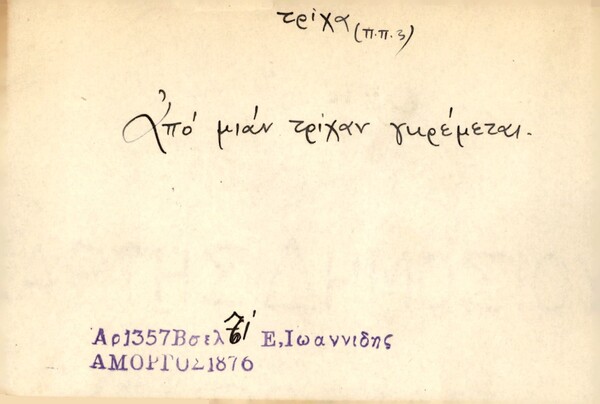 τρίχα (π.π. 3)
Ἀπό μιάν τρίχαν γκρέμεται.
Αρ1357Βσελ Ε,Ιωαννιδης
ΑΜΟΡΓΟΣ1876